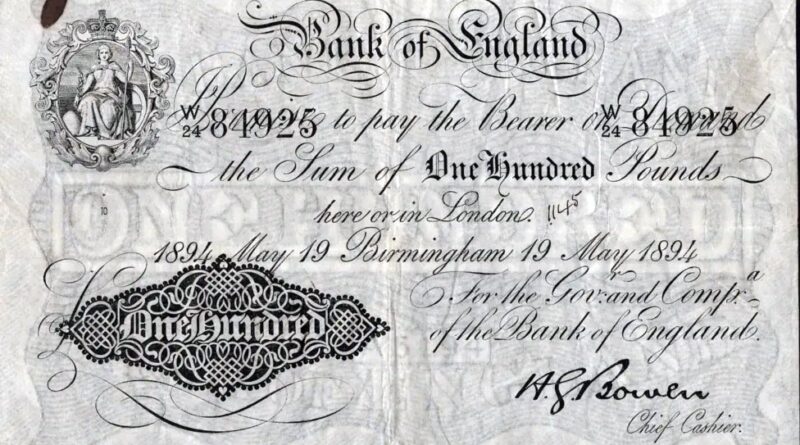 Bank of England
W/24 84925 I Promise to pay the Bearer on Demand W/24 84925
the Sum of One Hundred Pounds
here or in London. 1145
10
1894 May 19 Birmingham 19 May 1894
For the Gov.r and Comp.a
of the Bank of England.
One Hundred
H G Bowen
Chief Cashier.
ONE HUNDRED